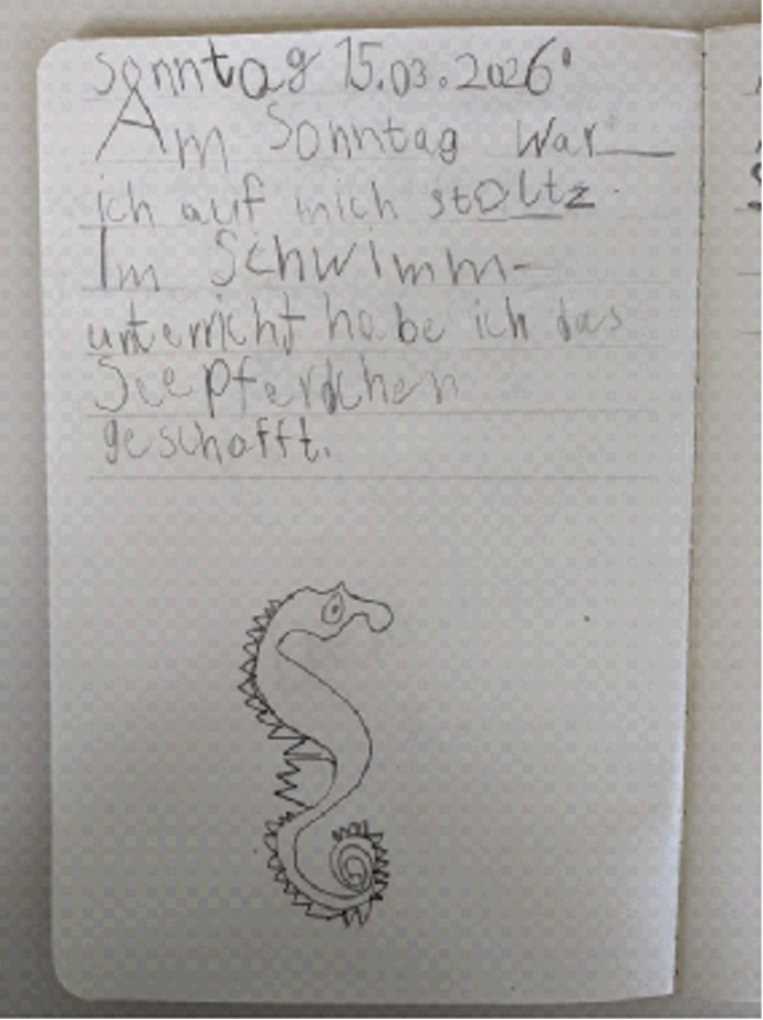 Sonntag 15.03.2026.
Am Sonntag war
ich auf mich stoltz.
Im Schwimm-
unterricht habe ich das
Seepferdchen
geschafft.